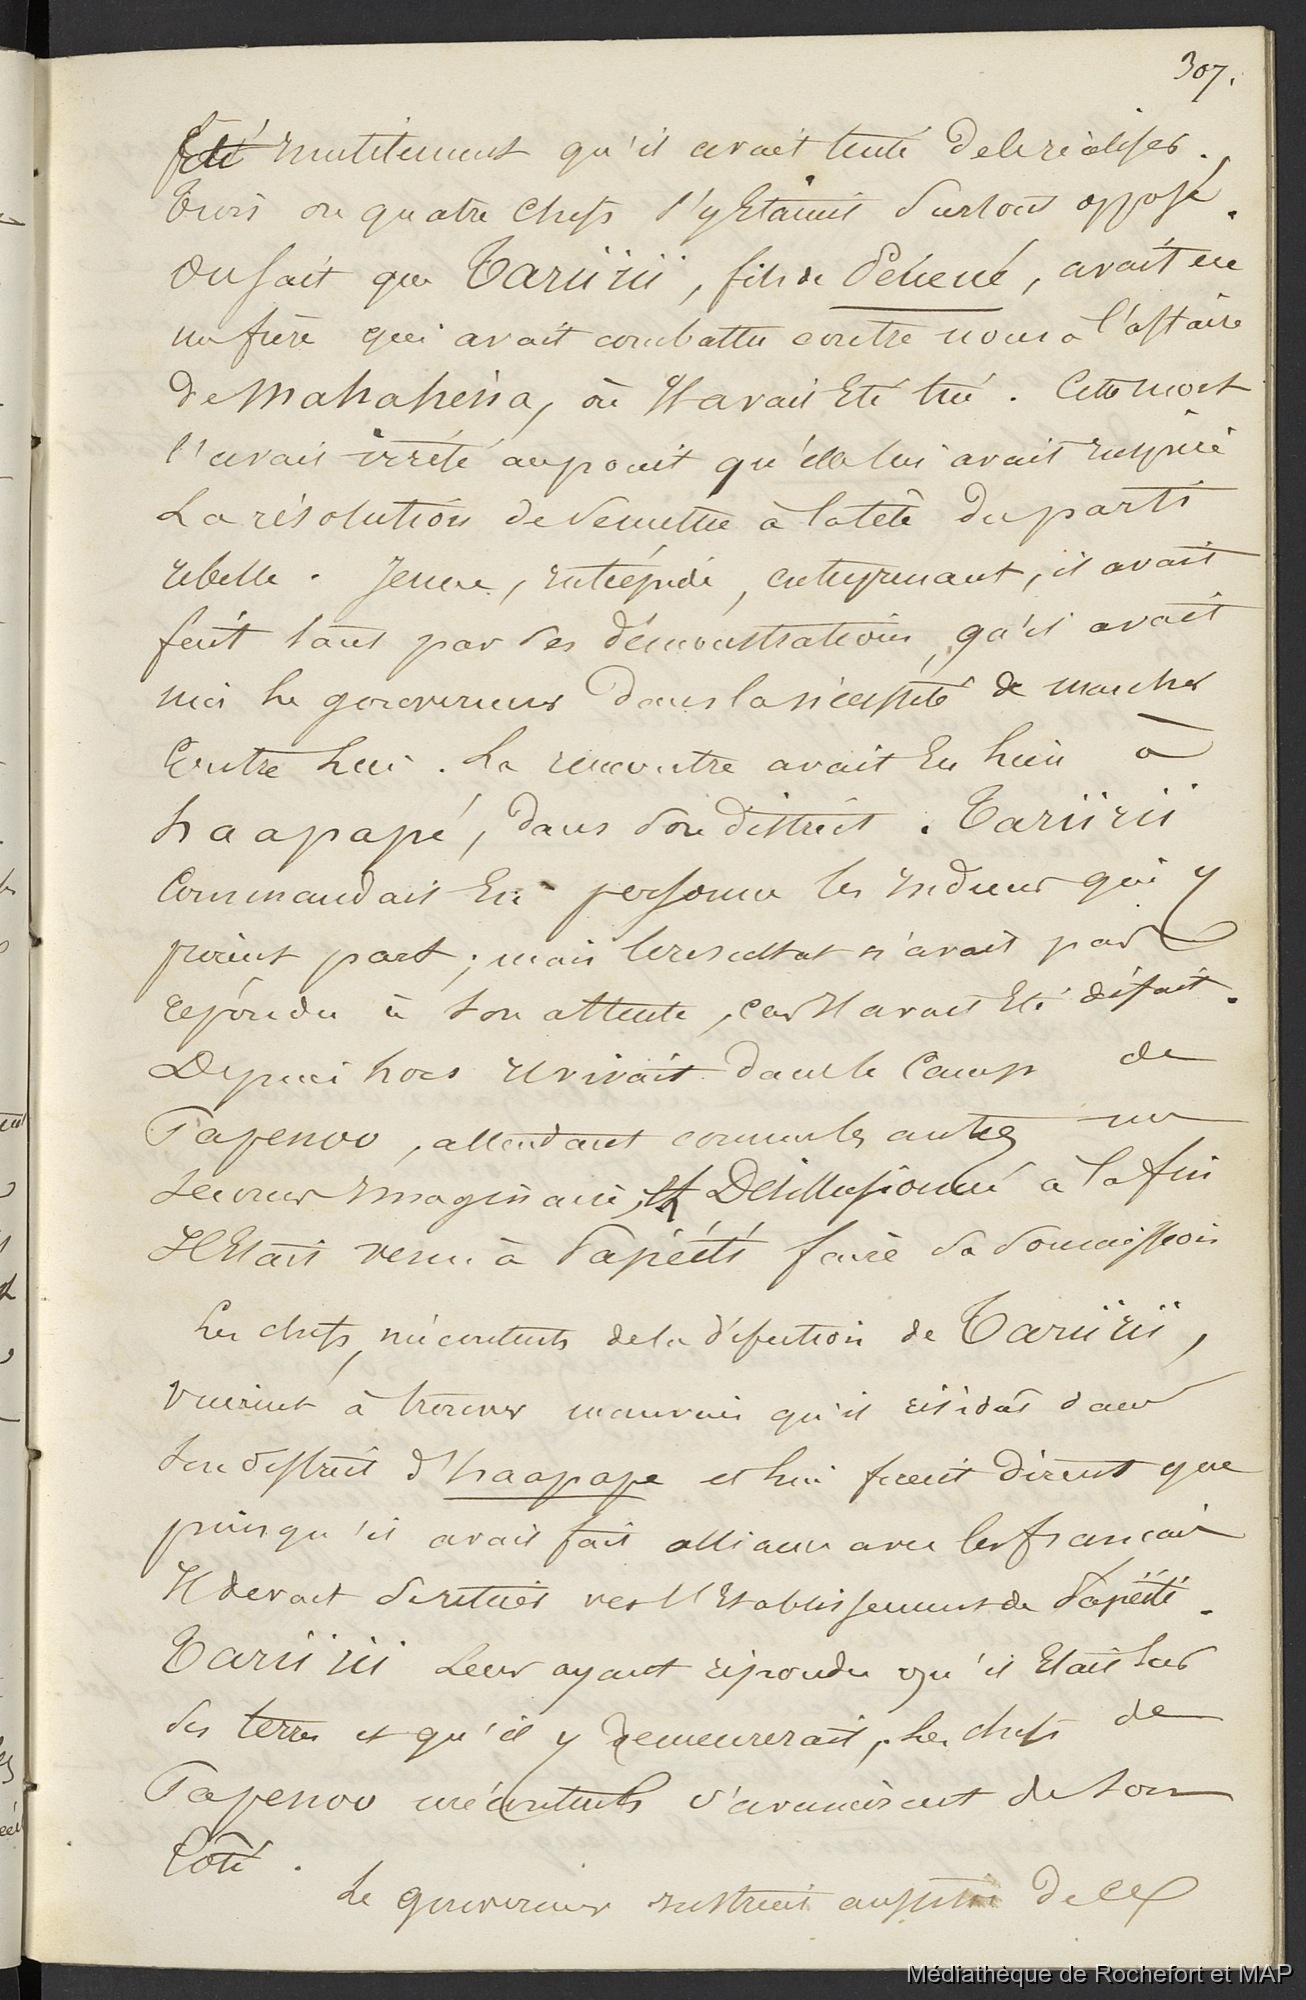 307.
été inutilement qu'il avait tenté de le réaliser.
Trois ou quatre chefs s'y étaient surtout opposé.
On sait que Tariirii, fils de Péhené, avait eu
un frère qui avait combattu contre nous à l'affaire
de Mahahéna, où Il avait été tué. Cette mort
l'avait irrité au point qu'elle lui avait inspiré
La résolution de se mettre à la tête du parti
rebelle. Jeune, intrépide, entreprenant, il avait
fait tant par ses démonstrations, qu'il avait
mis le gouverneur dans la nécessité de marcher
Contre lui. La rencontre avait eu lieu à
haapapé, dans son district. Tariirii
Commandait En personne les indiens qui y
prirent part; mais le resultat n'avait pas
répondu à son attente, car Il avait été défait.
Depuis lors il vivait dans le Camp de
Papenoo, attendant comme les autres un
secours imaginaire, et Désillusionné à la fin
Il Etait venu à Papéété faire sa soumission
Les chefs, mécontents de la défection de Tariirii,
vinrent à trouver mauvais qu'il résidât dans
son district d'haapape et lui firent dirent que
puisqu'il avait fait alliance avec les français
Il devait se retirer vers l'Etablissement de Papéété.
Tariirii Leur ayant répondu qu'il Etait sur
ses terres et qu'il y demeurerait, les chefs de
Papenoo mécontents s'avancèrent de son
Côté.
Le gouverneur instruit aussitôt de ces
Médiathèque de Rochefort et MAP